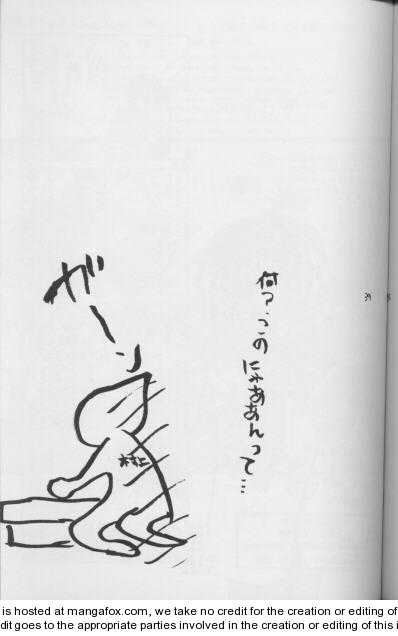 何？このにゃああんって…
ガーン
村上
39
is hosted at mangafox.com, we take no credit for the creation or editing of
dit goes to the appropriate parties involved in the creation or editing of this i